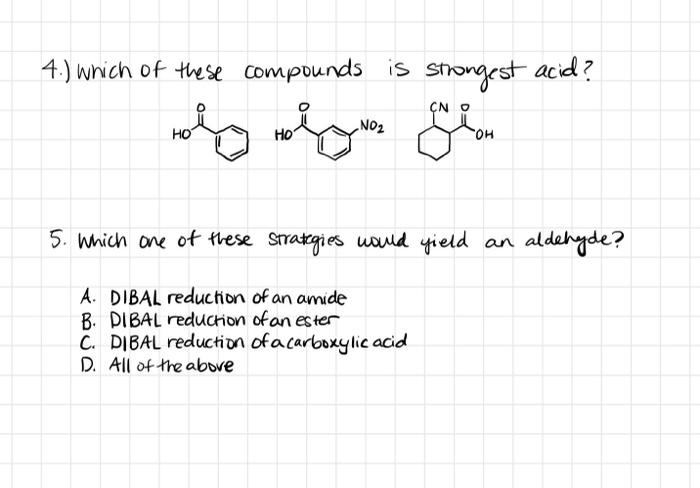 4.) Which of these compounds is strongest acid?
O O CN O
HO HO NO2 OH
5. Which one of these stratgies would yield an aldehyde?
A. DIBAL reduction of an amide
B. DIBAL reduction of an ester
C. DIBAL reduction of a carboxylic acid
D. All of the above